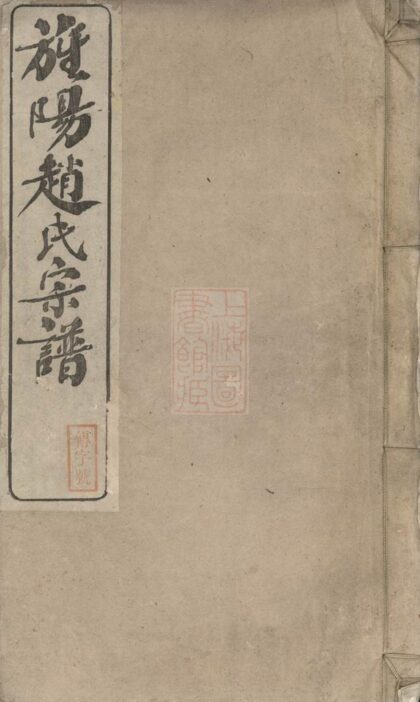 旌陽趙氏宗譜
字號
上海圖
書館藏